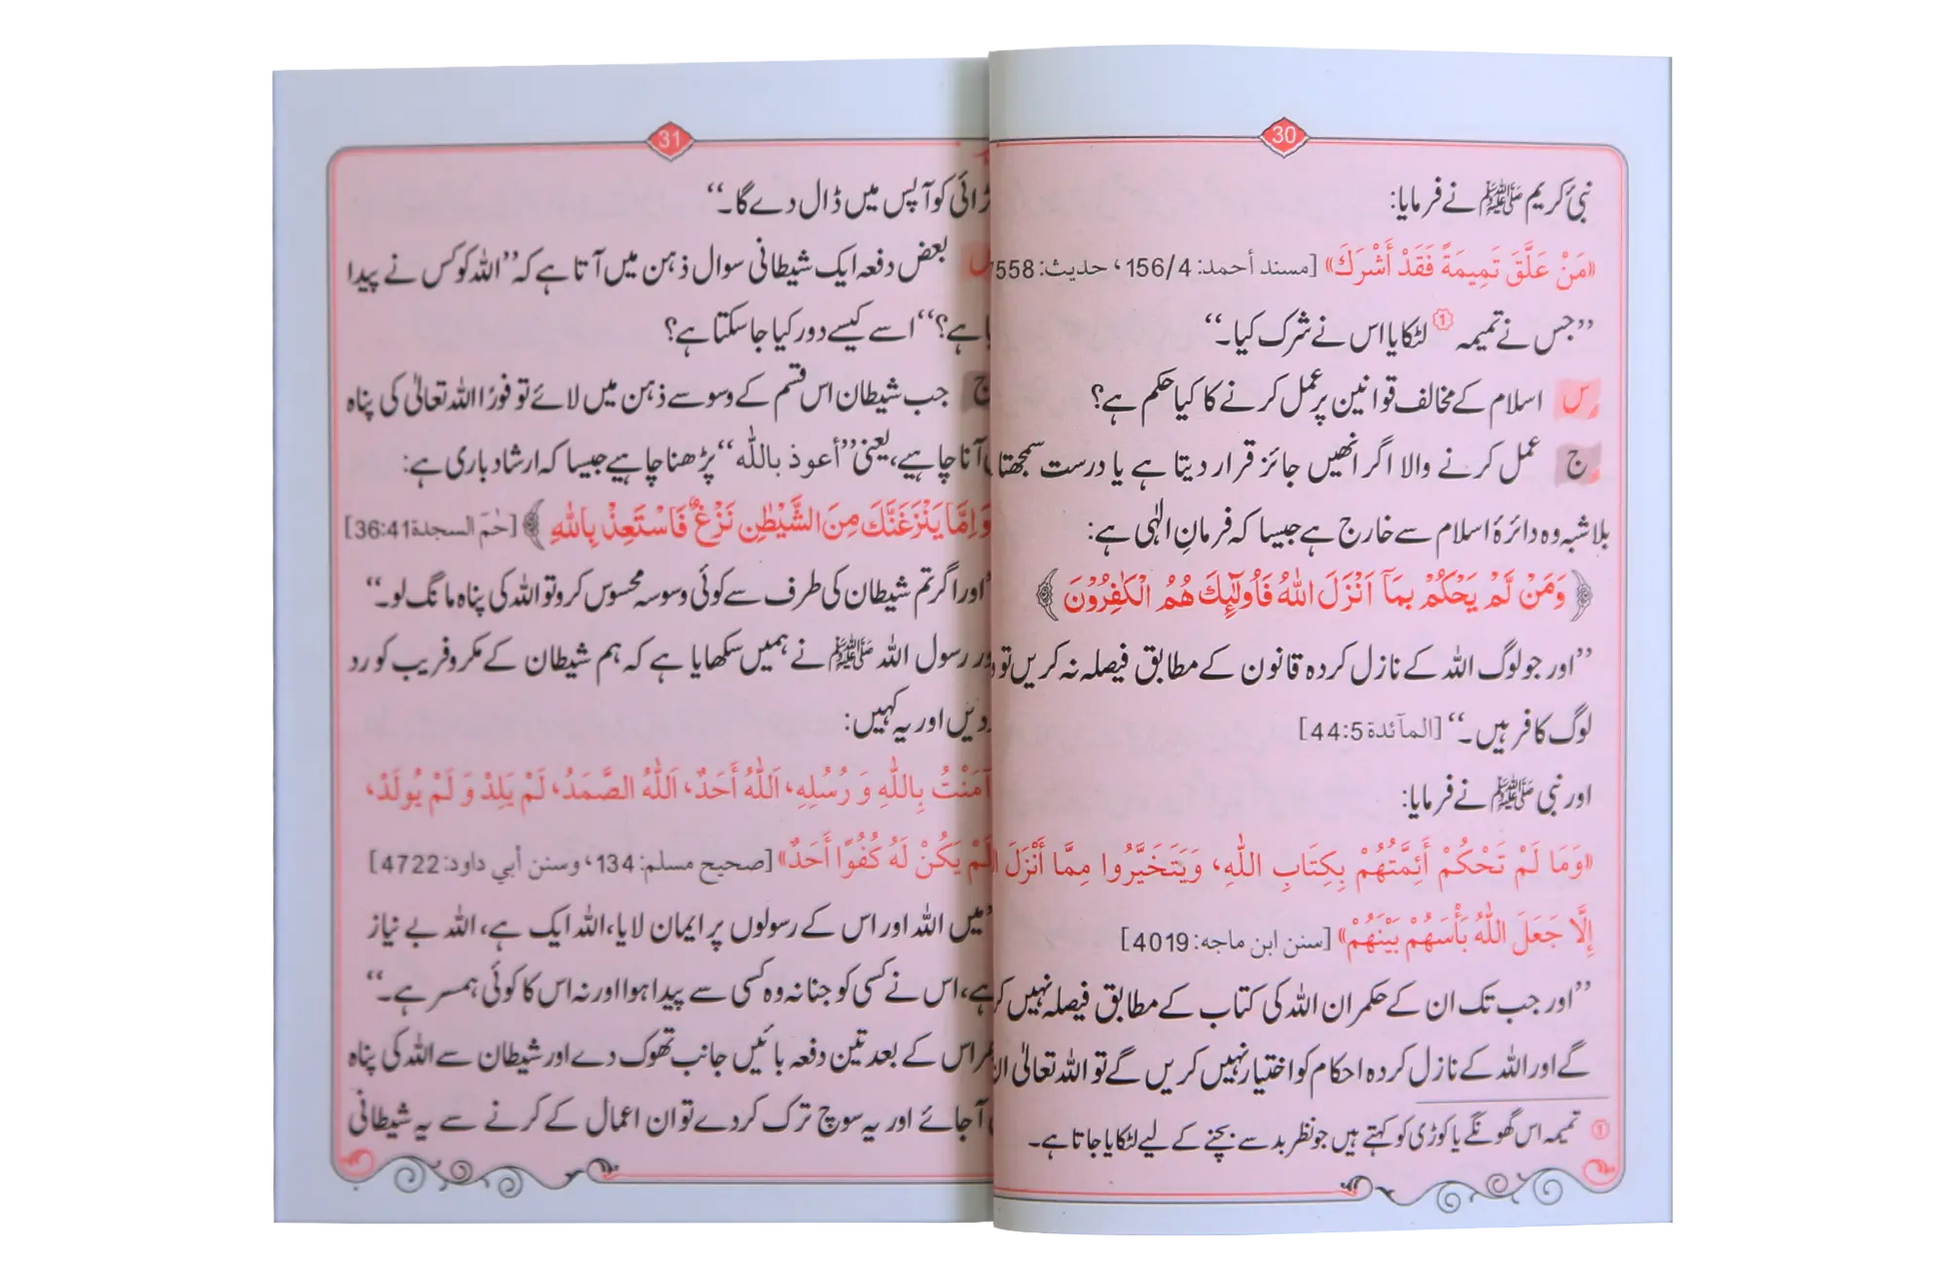 30
نبیٔ کریم ﷺ نے فرمایا:
«مَنْ عَلَّقَ تَمِيمَةً فَقَدْ أَشْرَكَ» [مسند أحمد: 156/4، حديث: 7558
’’جس نے تمیمہ ① لٹکایا اس نے شرک کیا۔‘‘
س اسلام کے مخالف قوانین پر عمل کرنے کا کیا حکم ہے؟
ج عمل کرنے والا اگر انھیں جائز قرار دیتا ہے یا درست سمجھتا
بلاشبہ وہ دائرۂ اسلام سے خارج ہے جیسا کہ فرمانِ الٰہی ہے:
﴿ وَمَنْ لَّمْ يَحْكُمْ بِمَآ اَنْزَلَ اللّٰهُ فَاُولٰٓئِكَ هُمُ الْكٰفِرُوْنَ ﴾
’’اور جو لوگ اللہ کے نازل کردہ قانون کے مطابق فیصلہ نہ کریں تو
لوگ کافر ہیں۔‘‘ [المآئدة 44:5]
اور نبی ﷺ نے فرمایا:
«وَمَا لَمْ تَحْكُمْ أَئِمَّتُهُمْ بِكِتَابِ اللّٰهِ، وَيَتَخَيَّرُوا مِمَّا أَنْزَلَ
إِلَّا جَعَلَ اللّٰهُ بَأْسَهُمْ بَيْنَهُمْ» [سنن ابن ماجه: 4019]
’’اور جب تک ان کے حکمران اللہ کی کتاب کے مطابق فیصلہ نہیں
گے اور اللہ کے نازل کردہ احکام کو اختیار نہیں کریں گے تو اللہ تعالیٰ
① تمیمہ اس گھونگے یا کوڑی کو کہتے ہیں جو نظر بد سے بچنے کے لیے لٹکایا جاتا ہے۔
31
کو آپس میں ڈال دے گا۔‘‘
بعض دفعہ ایک شیطانی سوال ذہن میں آتا ہے کہ ’’اللہ کو کس نے پیدا
ہے؟‘‘ اسے کیسے دور کیا جا سکتا ہے؟
ج جب شیطان اس قسم کے وسوسے ذہن میں لائے تو فورًا اللہ تعالیٰ کی پناہ
آنا چاہیے، یعنی ’’أعوذ باللّٰه‘‘ پڑھنا چاہیے جیسا کہ ارشاد باری ہے:
وَاِمَّا يَنْزَغَنَّكَ مِنَ الشَّيْطٰنِ نَزْغٌ فَاسْتَعِذْ بِاللّٰهِ ﴾ [حٰمٓ السجدة 36:41]
’’اور اگر تم شیطان کی طرف سے کوئی وسوسہ محسوس کرو تو اللہ کی پناہ مانگ لو۔‘‘
رسول اللہ ﷺ نے ہمیں سکھایا ہے کہ ہم شیطان کے مکر و فریب کو رد
دیں اور یہ کہیں:
آمَنْتُ بِاللّٰهِ وَ رُسُلِهِ، اَللّٰهُ أَحَدٌ، اَللّٰهُ الصَّمَدُ، لَمْ يَلِدْ وَ لَمْ يُولَدْ،
لَمْ يَكُنْ لَهُ كُفُوًا أَحَدٌ» [صحيح مسلم: 134، وسنن أبي داود: 4722]
’’میں اللہ اور اس کے رسولوں پر ایمان لایا، اللہ ایک ہے، اللہ بے نیاز
ہے، اس نے کسی کو جنا نہ وہ کسی سے پیدا ہوا اور نہ اس کا کوئی ہمسر ہے۔‘‘
اس کے بعد تین دفعہ بائیں جانب تھوک دے اور شیطان سے اللہ کی پناہ
آجائے اور یہ سوچ ترک کر دے تو ان اعمال کے کرنے سے یہ شیطانی